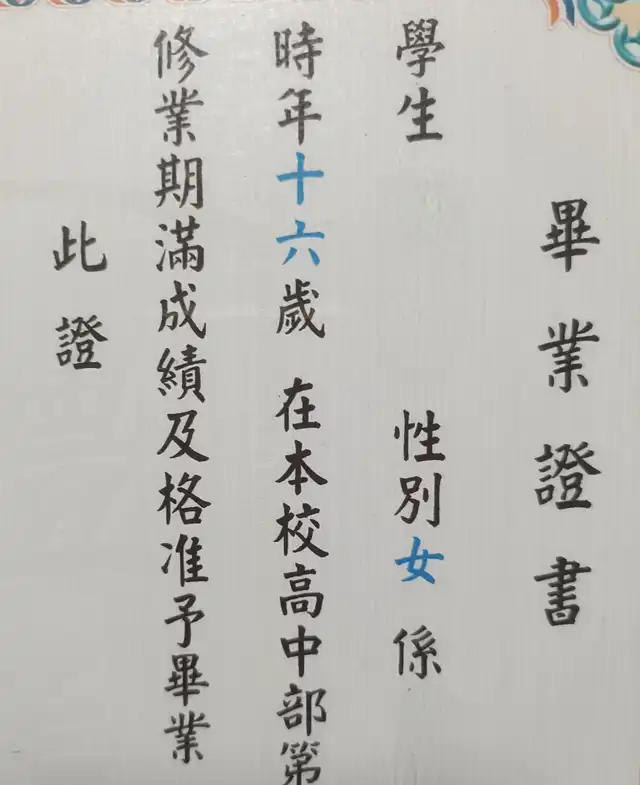 畢業證書
學生 性別女係
時年十六歲 在本校高中部第
修業期滿成績及格准予畢業
此證